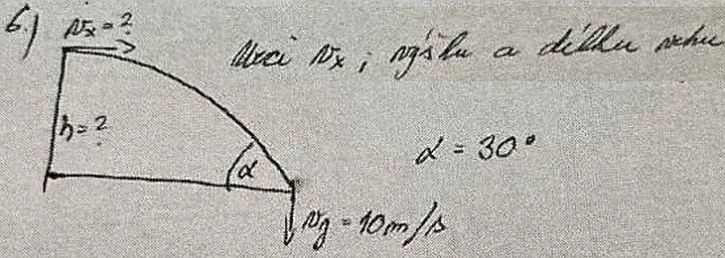 6.) vx = ?
Urči vx, výšku a délku vrhu
h = ?
α = 30°
α
vy = 10 m/s